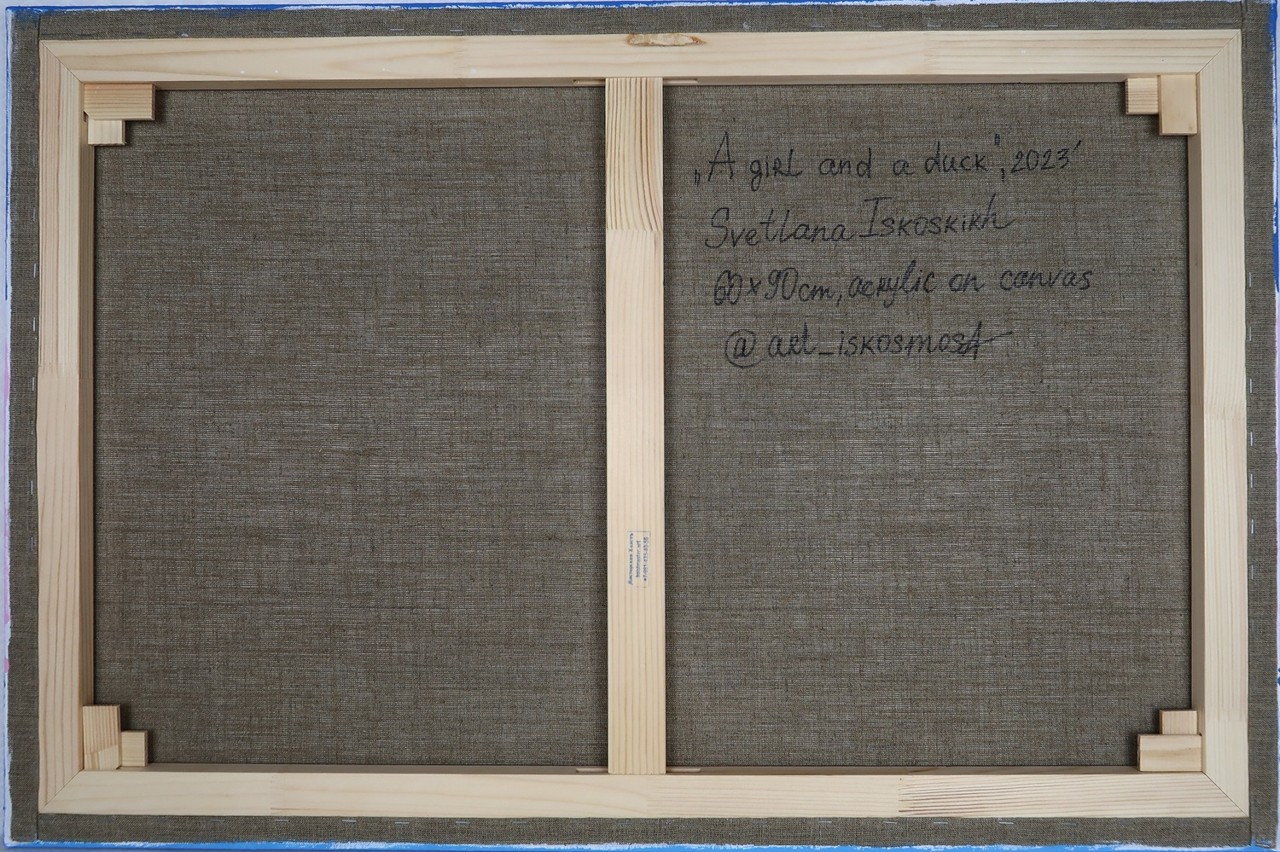 „A girl and a duck", 2023'
Svetlana Iskoskikh
60×90cm, acrylic on canvas
@art_iskosmost